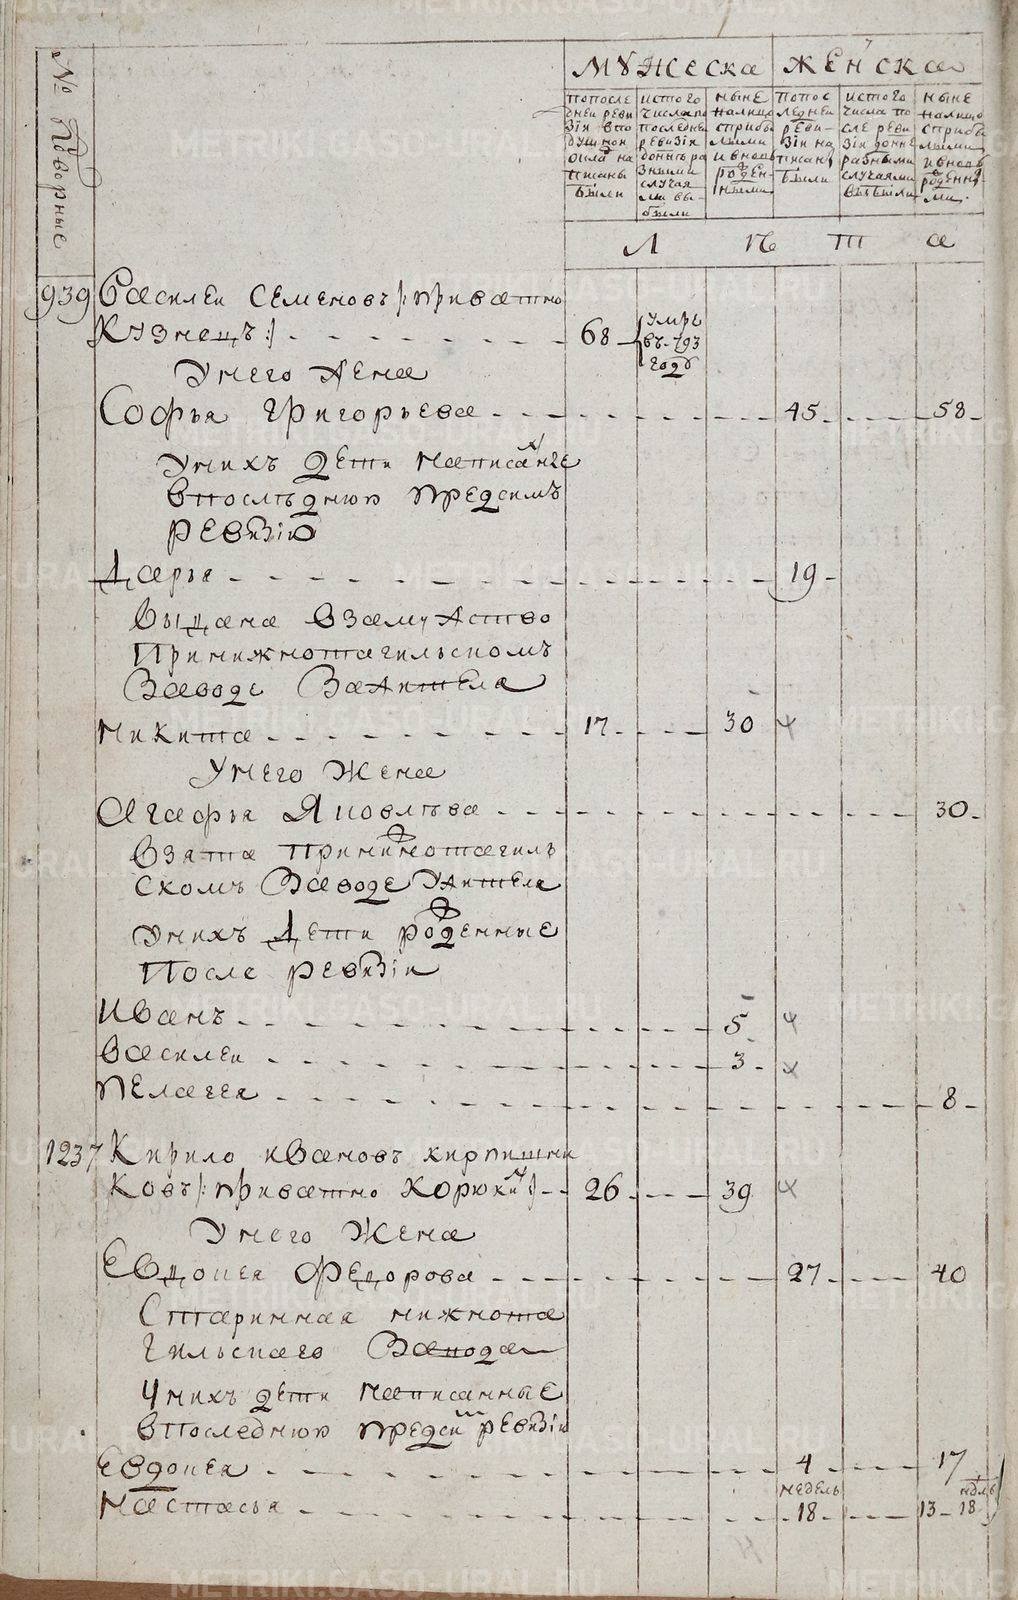 № Подворные
мужеска женска
попосле дней ревизіи вподушной оклад написаны были
истого числа попоследней ревизіи доныне разными случаями выбыли
ныне налицо сприбылыми ивновь рожденными
попоследней ревизіи написаны были
истого числа после ревизіи доныне разными случаями выбыли
ныне налицо сприбылыми ивновь рожденными
Л ѣ т а
939 Василеи семеновъ /: приватно
кузнецъ :/ 68 умре въ 793 годѣ
Унего жена
Софья григорьева 45 58
Унихъ дети написанные
впоследнюю предсимъ
ревизію
Дарья 19
выдана взамужство
Принижнотагильскомъ
Заводе Зажителя
Никита 17 30
Унего жена
агафья Яковлева 30
взята принижнотагиль
скомъ Заводе Ужителя
Унихъ дети рожденные
После ревизіи
Иванъ 5
василеи 3
пелагея 8
1237 Кирило ивановъ кирпишни
ковъ /: приватно корюкинъ :/ 26 39
Унего жена
Евдокея Федорова 27 40
Старинная нижнота
гильскаго Завода
Унихъ дети написанные
впоследнюю предсимъ ревизію
евдокея 4 17
настасья недель 18 13 - 18 недель
METRIKI.GASO-URAL.RU